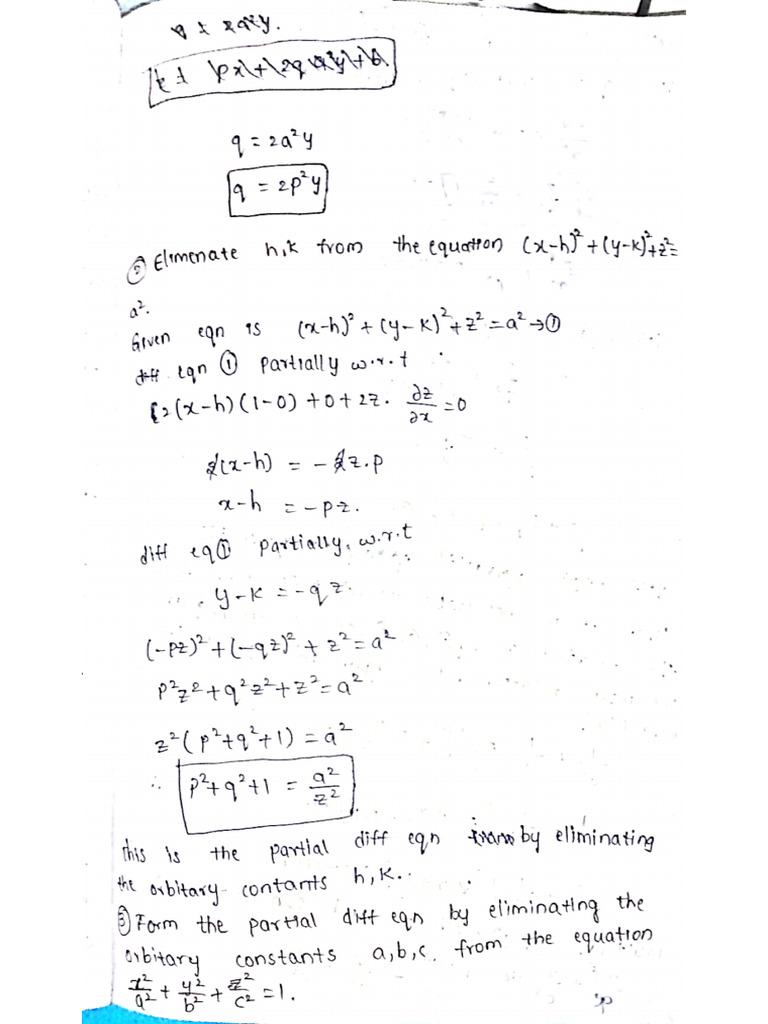 q = 2a²y
q = 2p²y
② Elimenate h,k from the equation (x-h)²+(y-k)²+z²=
a².
Given eqn is (x-h)²+(y-k)²+z²=a²→①
diff eqn ① partially w.r.t
2(x-h)(1-0)+0+2z. ∂z/∂x =0
2(x-h) = -2z.p
x-h = -pz.
diff eq① partially, w.r.t
y-k = -qz.
(-pz)²+(-qz)²+z²=a²
p²z²+q²z²+z²=a²
z²(p²+q²+1)=a²
∴ p²+q²+1 = a²/z²
this is the partial diff eqn by eliminating
the orbitary contants h,k..
③ Form the partial diff eqn by eliminating the
orbitary constants a,b,c from the equation
x²/a² + y²/b² + z²/c² =1.